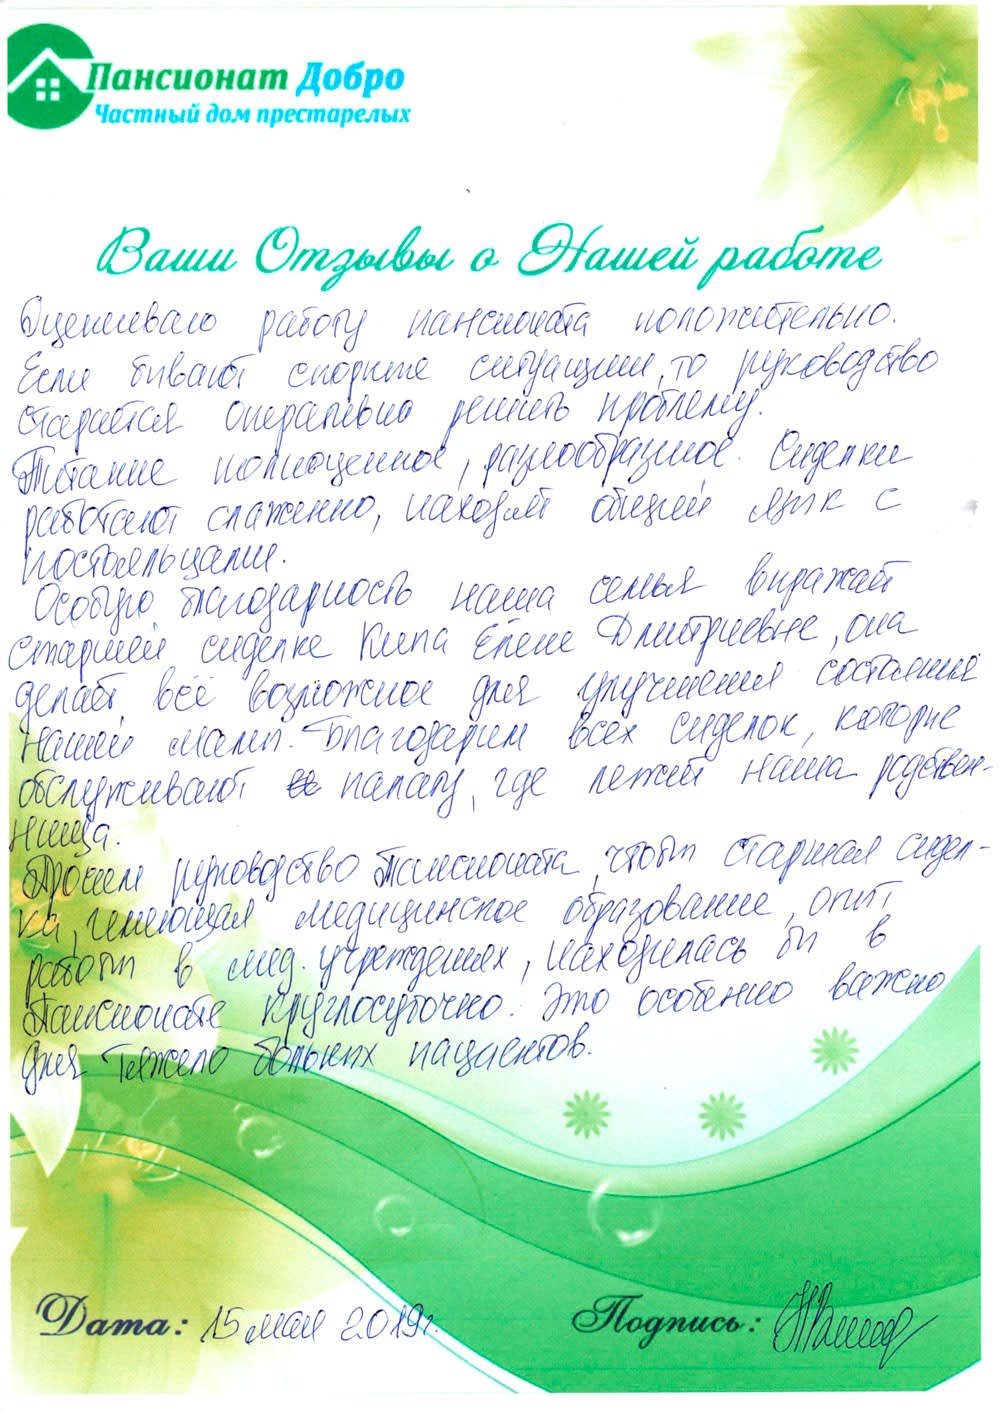 Пансионат Добро
Частный дом престарелых
Ваши Отзывы о Нашей работе
Оцениваю работу пансионата положительно.
Если бывают спорные ситуации, то руководство
старается оперативно решить проблему.
Питание полноценное, разнообразное. Сиделки
работают слаженно, находят общий язык с
постояльцами.
Особую благодарность наша семья выражает
старшей сиделке Кипа Елене Дмитриевне, она
делает всё возможное для улучшения состояния
нашей мамы. Благодарим всех сиделок, которые
обслуживают палату, где лежит наша родствен-
ница.
Просим руководство Пансионата, чтобы старшая сидел-
ка, имеющая медицинское образование, опыт
работы в мед. учреждениях, находилась бы в
Пансионате круглосуточно. Это особенно важно
для тяжело больных пациентов.
Дата: 15 мая 2019г.
Подпись: